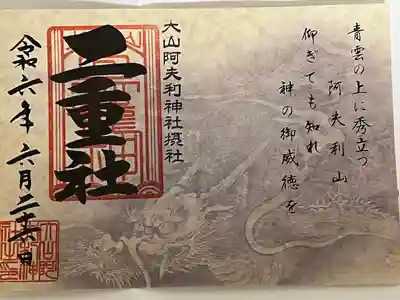 青雲の上に秀立つ
阿夫利山
仰ぎても知れ
神の御威徳を
大山阿夫利神社摂社
二重社
令和六年六月二十六日